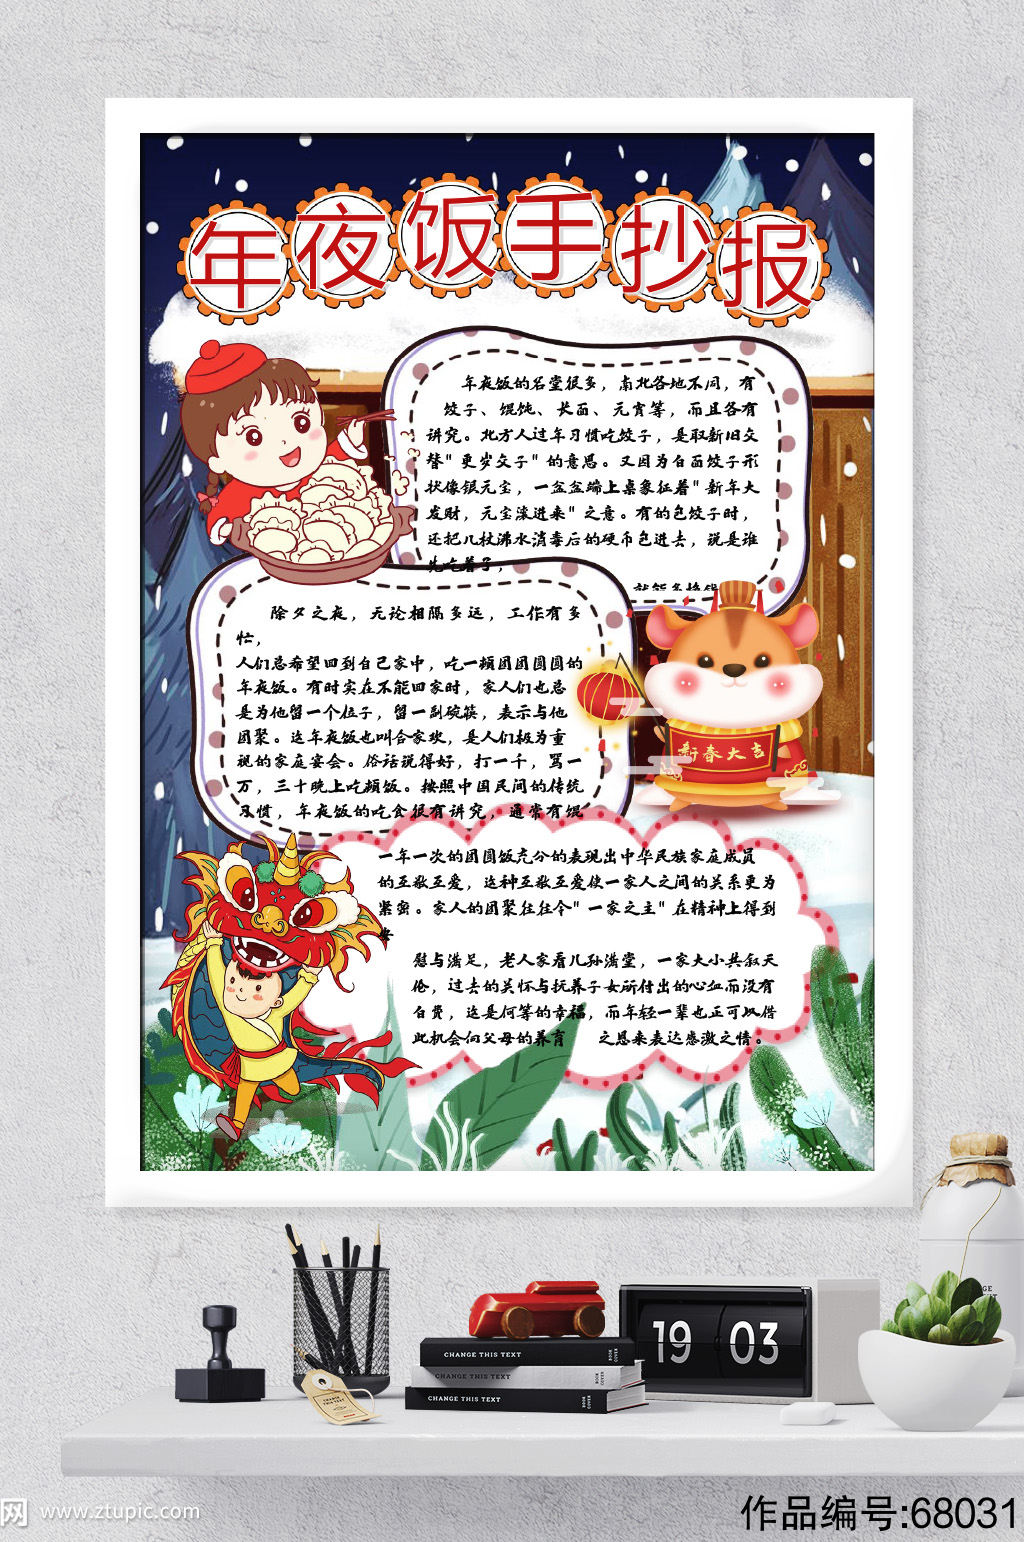 年夜饭手抄报
年夜饭的名堂很多，南北各地不同，有
饺子、馄饨、长面、元宵等，而且各有
讲究。北方人过年习惯吃饺子，是取新旧交
替"更岁交子"的意思。又因为白面饺子形
状像银元宝，一盆盆端上桌象征着"新年大
发财，元宝滚进来"之意。有的包饺子时，
还把几枚沸水消毒后的硬币包进去，说是谁
先吃着了，
就能多挣钱
除夕之夜，无论相隔多远，工作有多
忙，
人们总希望回到自己家中，吃一顿团团圆圆的
年夜饭。有时实在不能回家时，家人们也总
是为他留一个位子，留一副碗筷，表示与他
团聚。这年夜饭也叫合家欢，是人们极为重
视的家庭宴会。俗话说得好，打一千，骂一
万，三十晚上吃顿饭。按照中国民间的传统
习惯，年夜饭的吃食很有讲究，通常有馄
新春大吉
一年一次的团圆饭充分的表现出中华民族家庭成员
的互敬互爱，这种互敬互爱使一家人之间的关系更为
紧密。家人的团聚往往令"一家之主"在精神上得到
安
慰与满足，老人家看儿孙满堂，一家大小共叙天
伦，过去的关怀与抚养子女所付出的心血而没有
白费，这是何等的幸福，而年轻一辈也正可以借
此机会向父母的养育 之恩来表达感激之情。
19 03
CHANGE THIS TEXT
CHANGE THIS TEXT
CHANGE THIS TEXT
网 www.ztupic.com
作品编号:68031